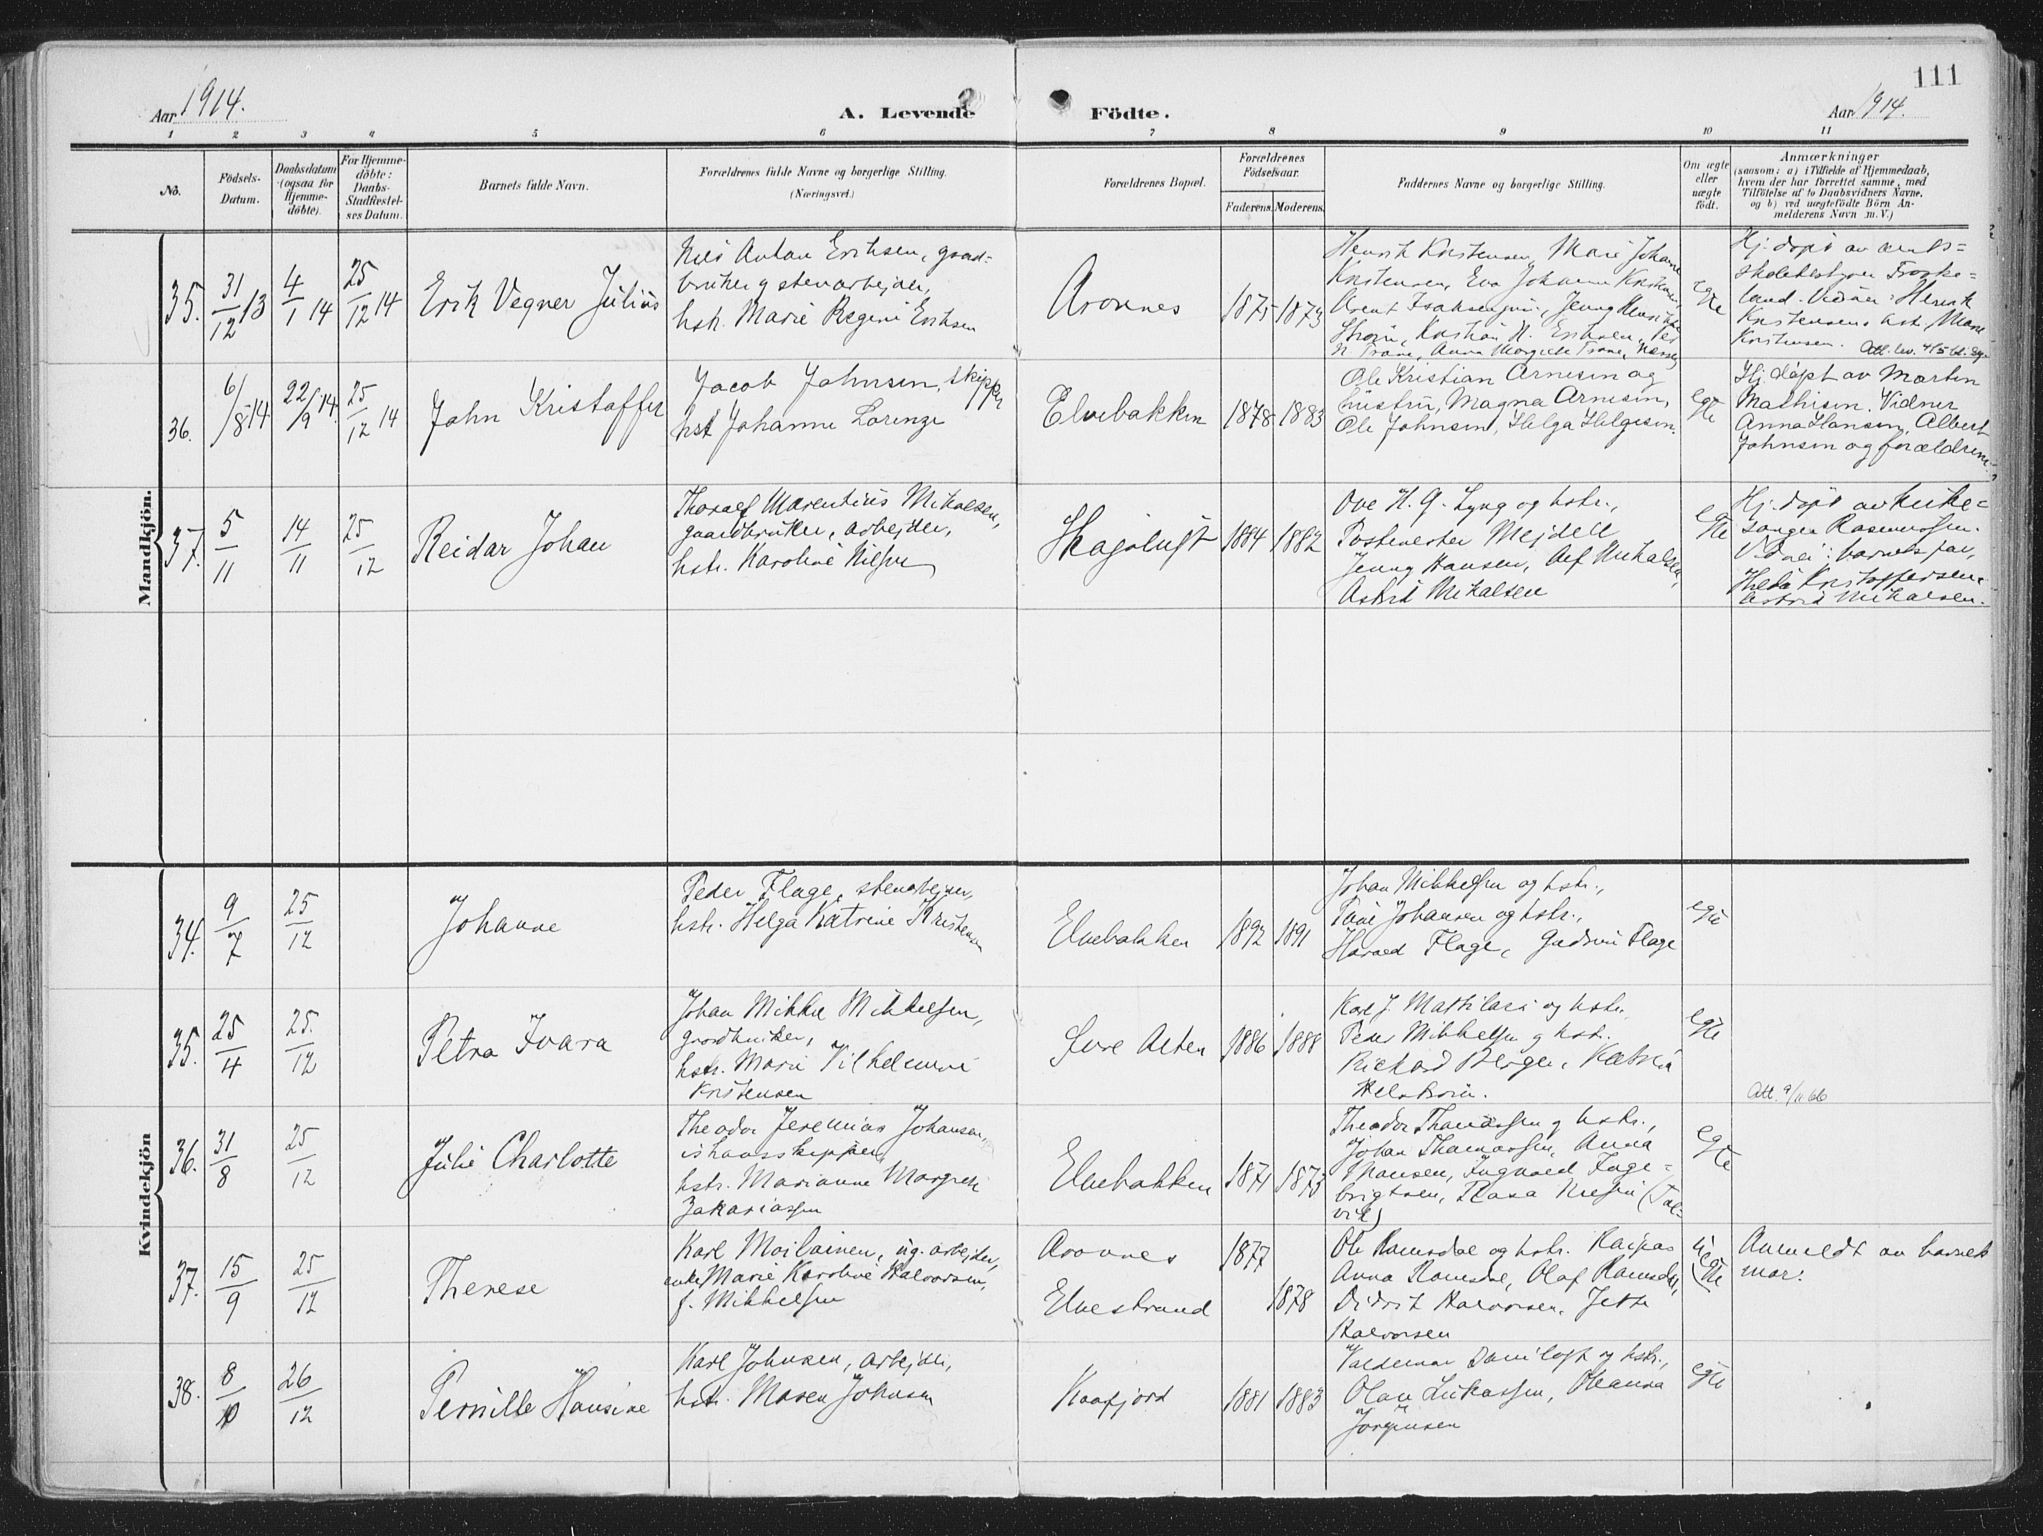 111
Aar 1914.
A. Levende Födte.
Aar 1914.
1 2 3 4 5 6 7 8 9 10 11
No.
Födsels-
Datum.
Daabsdatum
(ogsaa for
Hjemme-
döbte).
For Hjemme-
döbte:
Daabs-
Stadfæstel-
ses Datum.
Barnets fulde Navn.
Forældrenes fulde Navne og borgerlige Stilling.
(Næringsvei.)
Forældrenes Bopæl.
Forældrenes
Födselsaar.
Faderens. Moderens.
Faddernes Navne og borgerlige Stilling.
Om ægte
eller
uægte
födt.
Anmærkninger
(saasom: a) i Tilfælde af Hjemmedaab,
hvem der har forrettet samme, med
Tilföielse af to Daabsvidners Navne,
og b) ved uægtefödte Börn An-
melderens Navn m. V.)
Mandkjön.
35.
31/12 13
4/1 14
25/12 14
Erik Vegner Julius
Nils Anton Eriksen, gaard-
bruker og stenarbejder,
hstr. Marie Regine Eriksen
Aronnes
1875
1873
Henrik Kristensen, Marie Johanne
Kristensen, Eva Johanne Kristensen
Arent Isaksen jun., Jenny
Kristian N. Eriksen,
N. Trane, Anna Margrete Trane,
egte
Hj. døpt av amts-
skolebestyrer
land. Vidner: Henrik
Kristensen, hstr. Marie
Kristensen.
36.
6/8 14
22/9 14.
25/12 14
John Kristoffer
Jacob Johnsen, skipper
hst Johanne Lorenze
Elvebakken
1878
1883
Ole Kristian Arnesen og
hustru, Magna Arnesen,
Ole Johnsen, Helga Helgesen.
egte
Hj. døpt av Morten
Mathisen. Vidner
Anna Hansen, Albert
Johnsen og forældrene.
37.
5/11
14/11
25/12
Reidar Johan
Thoralf Marentius Mikalsen,
gaardbruker, arbejder,
hstr. Karoline Nilsen
Skaialuft
1884
1882
Ove H. G. Lyng og hstr.,
Postmester Mejdell
Jenny Hansen, Alf Mikalsen,
Astrid Mikalsen
egte
Hj. døpt av kirke-
sanger
Vidner: barnets far,
Hilda Kristoffersen,
Astrid Mikalsen.
Kvindekjön
34.
9/7
25/12
Johanne
Peder Flage, stenarbejder,
hstr. Helga Katrine Kristensen
Elvebakken
1892
1891
Johan Mikkelsen og hstr.,
Johansen og hstr.,
Harald Flage, Gudrun Flage
egte
35.
25/4
25./12
Petra Ivara
Johan Mikkel Mikkelsen,
gaardbruker,
hstr. Marie Vilhelmine
Kristensen
Øvre Alten
1886
1888
Karl J. Mattilasi og hstr.
Peder Mikkelsen og hstr.
Rickard Berger, Katrin
egte
Att. 9/11 66
36.
31/8
25/12
Julie Charlotte
Theodor Jeremias Johansen,
ishavsskipper,
hstr. Marianne Margrete
Zakariassen
Elvebakken
1871
1873
Theodor Thomassen og hstr.,
Johan Thomassen, Anna
Hansen, Ingvald Inge-
brigtsen, (Tal-
vik)
egte
37.
15/9
25/12
Therese
Karl Moilainen, ug. arbejder,
enke Marie Karoline Halvorsen,
f. Mikkelsen
Aronnes
Elvestrand
1877
1878
Ole Ramsdal og hstr.
Anna Ramsdal, Olaf Ramsdal,
Didrik Halvorsen, Jette
Halvorsen
u
egte
Anmeldt av barnets
mor.
38.
8/10
26/12
Pernille Hansine
Karl Johnsen, arbejder,
hstr. Maren Johnsen
Kaafjord
1881
1883
Valdemar Daniloft og hstr.,
Olav Lukassen, Oleanna
Jørgensen
egte